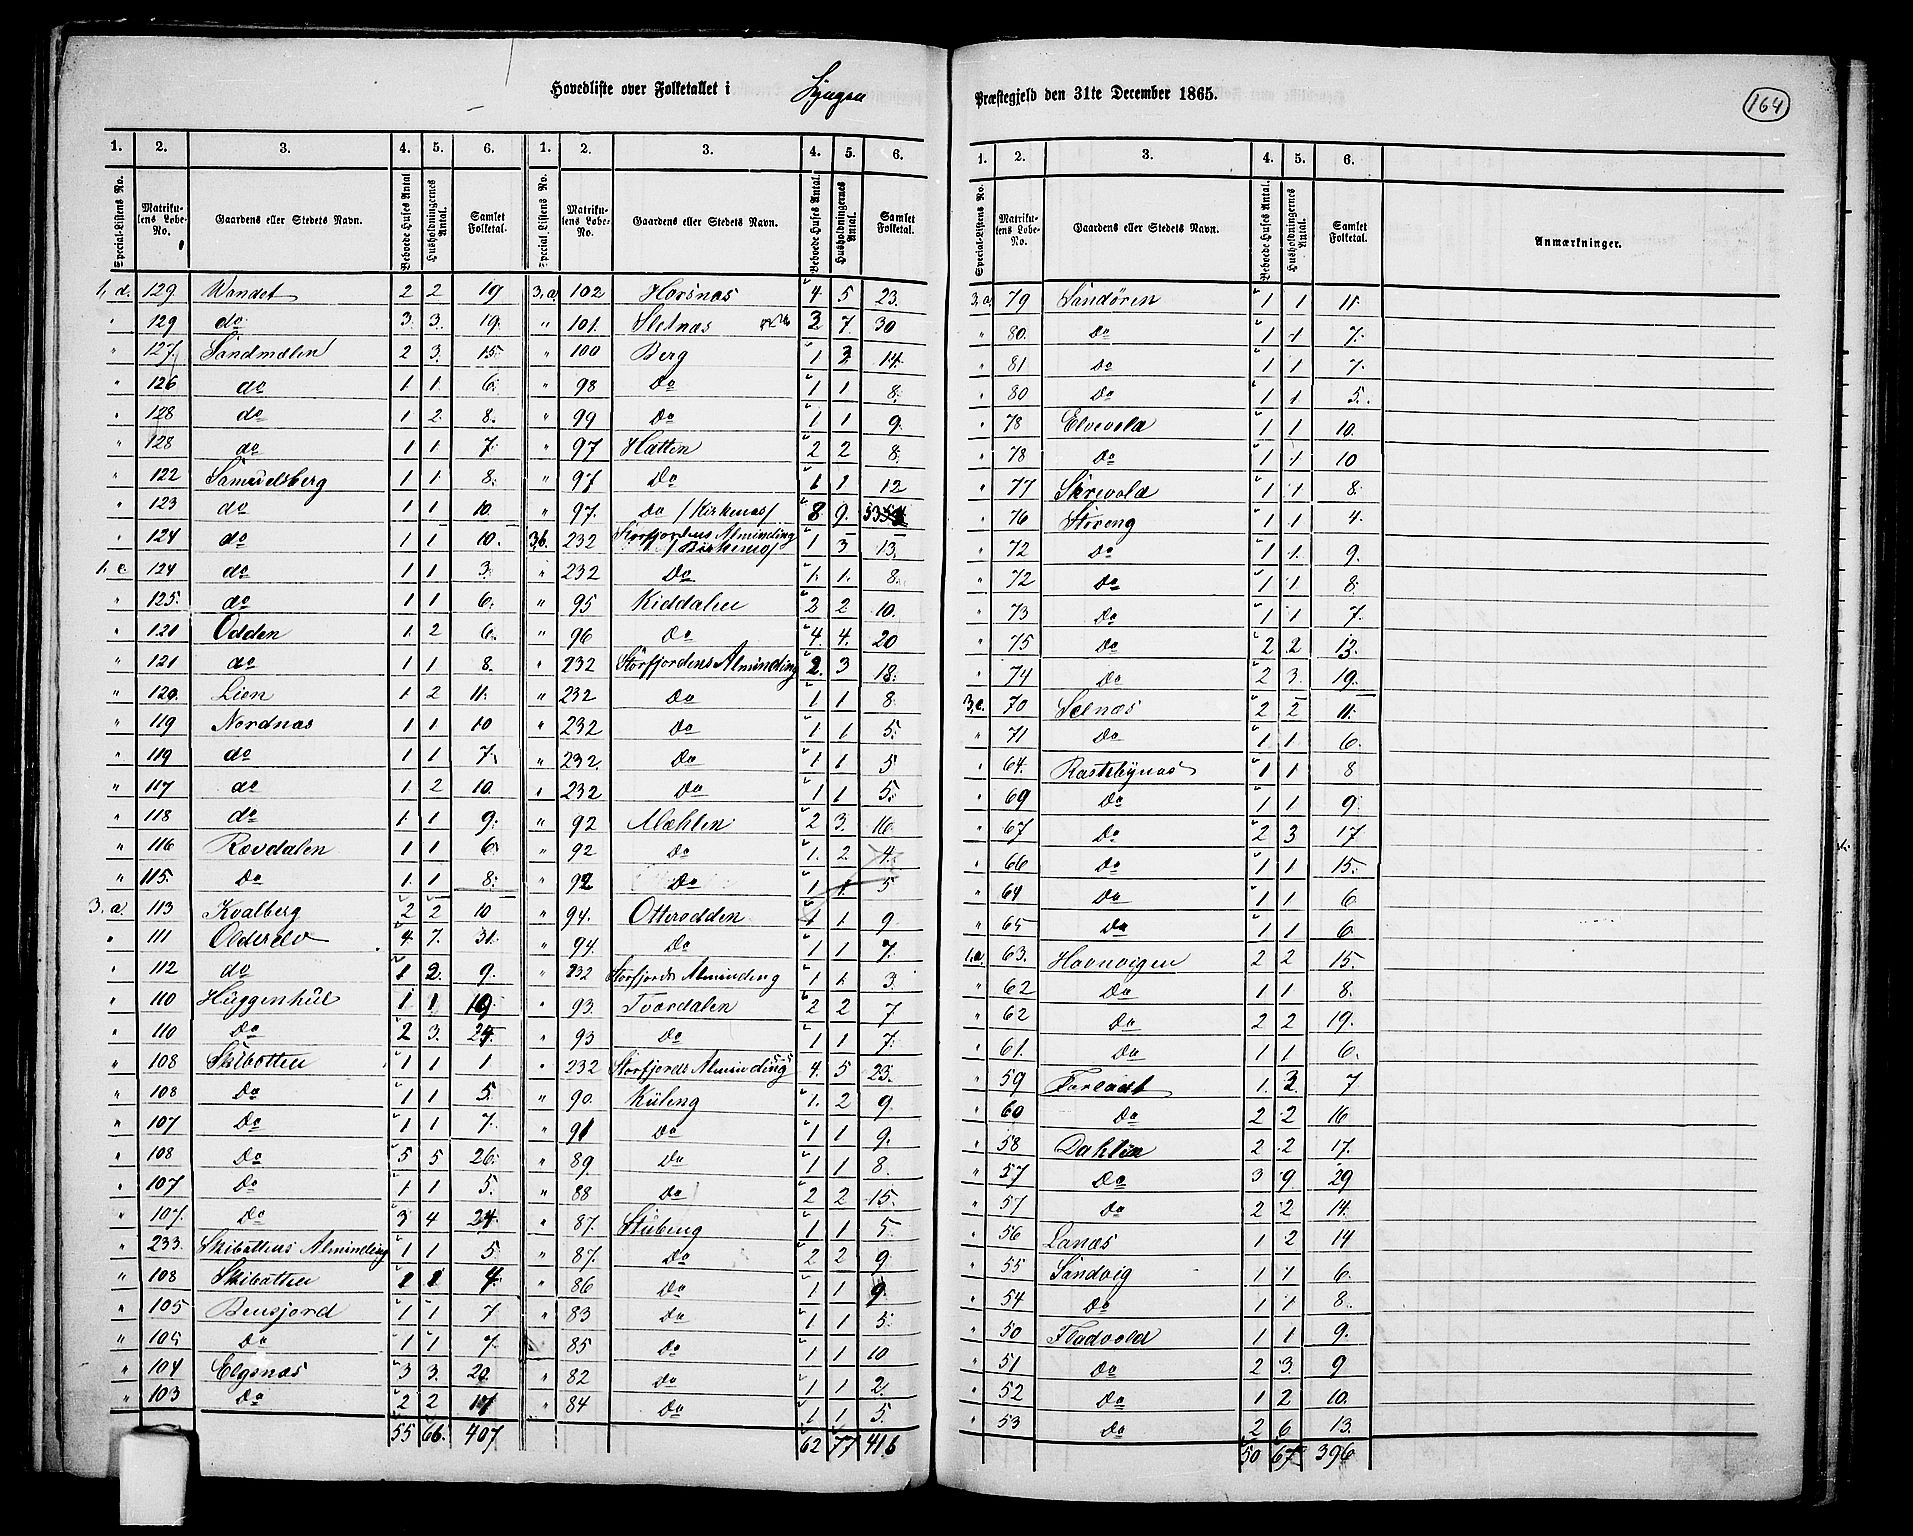 Hovedliste over Folketallet i Lyngen Præstegjeld den 31te December 1865.
164
1. 2. 3. 4. 5. 6. 1. 2. 3. 4. 5. 6.
Special-Listens No. Matrikulens Løbe-No. Gaardens eller Stedets Navn. Beboede Huses Antal Husholdningernes Antal. Samlet Folketal. Special-Listens No. Matrikulens Løbe-No. Gaardens eller Stedets Navn. Beboede Huses Antal. Husholdningernes Antal. Samlet Folketal.
1, d. 129 Wandet 2 2 19 3, a 102 Horsnæs 4 5 23.
" 129 do 3. 3. 19. " 101. Sletnæs 3 7 30
" 127. Sandmælen 2 3. 15. " 100 Berg 1 3 14.
" 126 do 1. 1. 6. " 98 Do 1 1 8.
" 128 do 1 2. 8. " 99 Do 1 1 9.
" 128 do 1 1 7. " 97 Hatten 2 2 8.
" 122 Samuelsberg 1 1. 8. " 97 Do 1 1 12
" 123 do 1 1 10. " 97. Do /Kirkenæs/ 8 9. 53
" 124 do 1 1 10. 3,b. 232 Storfjordens Alminding /Birkemo/ 1 3 13.
1. e 124 do 1 1 3. " 232 Do 1. 1. 8.
" 125. do 1 1 6. " 95 Kiddalen 2 2 10.
" 121 Odden 1. 2 6. " 96 Do 4. 4. 20
" 121 do 1 1 8. " 232 Storfjordens Alminding 2. 3 18.
" 120. Lien 1. 2 11. " 232 Do 1 1 8.
" 119 Nordnæs 1 1 10 " 232 Do 1 1 5.
" 119 do 1 1 7. " 232. Do 1 1 5
" 117 do 1. 2 10. " 232 Do 1 1 5.
" 118 do 1. 1 9. " 92 Mæhlen 2 3. 16
" 116 Rovdalen 1 1 6. " 92 Do 1. 2 4.
" 115. Do 1. 1 8. " 92 Do 1 1 5
3. a. 113 Kvalberg 2 2 10 " 94. Otterodden 1 1 9
" 111 Olderelv 4 7. 31. " 94. Do 1 1 7.
" 112 do 1 2. 9. " 232 Storfjords Alminding 1 1. 3.
" 110 Huggenhul 1 1 10 " 93. Tverdalen 2 2 7
" 110 Do 2 3. 24 " 93 Do 1 1 7.
" 108 Skibotten 1 1 1 " 232 Storfjords Alminding 4. 5 23.
" 108 Do 1 1 5. " 90. Kiileng 1. 2 9.
" 107 Do 1 1 7. " 91 Do 1 1 9.
" 108 Do 5 5 26. " 89. Do 1 1 8.
" 107. Do 1 1 5. " 88 Do 2 2 15.
" 107. Do 3 4 24 " 87. Stubeng 1 1 5
" 233. Skibottens Alminding 1 1 5 " 87. Do 2 2 9
" 108 Skibotten 1 1 4. " 86 Do 1 1 9.
" 105 Bensjord 1 1 7 " 83 Do 1 1 5.
" 105 Do 1 1 7. " 85 Do 1 1 10
" 104 Elgsnæs 3 3. 20. " 82 Do 1 1 2.
" 103 Do 2 2 14 " 84 Do 1 1 5.
55 66. 407 62 77 416
1. 2. 3. 4. 5. 6.
Special-Listens No. Matrikulens Løbe-No. Gaardens eller Stedets Navn. Beboede Huses Antal. Husholdningernes Antal. Samlet Folketal. Anmærkninger.
3. a. 79 Sandøren 1 1 11
" 80. Do 1 1 7.
" 81 Do 1 1 7.
" 80 Do 1 1 5.
" 78 Elvevold 1 1 10.
" 78 Do 1 1 10
" 77 Skrevold 1 1 8.
" 76 Støreng 1 1 4.
" 72 Do 1 1. 9.
" 72 Do 1 1 8.
" 73 Do 1 1 7.
" 75 Do 2 2 13.
" 74 Do 2 3. 19.
3,c. 70 Selnæs 2 2 11.
" 71 Do 1 1 6.
" 64. Rastebynæs 1 1 8
" 69 Do 1 1 9.
" 67 Do 2 3 17
" 66 Do 1 1 15.
" 64 Do 1 1 6
" 65 Do 1 1 6.
1.a. 63. Havnvigen 2 2 15.
" 62 Do 1 1 8.
" 62 Do 2 2 19.
" 61. Do 1 1 6.
" 59 1. 2. 7
" 60 Do 2 2 16
" 58 Dahlen 2 2 17.
" 57 Do 3 9 29
" 57 Do 2 2 14.
" 56 Lanæs 1 2 14
" 55 Sandvig 1 1 6.
" 54 Do 1 1 8.
" 50 Fladvold 1 1 9.
" 51 Do 2 3. 9
" 52 Do 1 2 10.
" 53 Do 2 6 13.
50 67 396